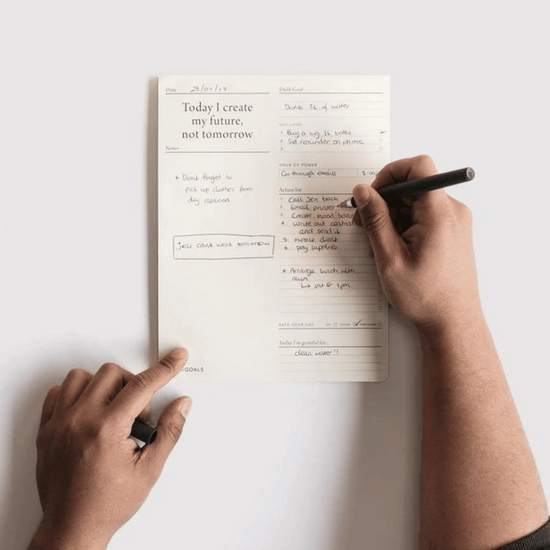 Date 25/07/17
Today I create
my future,
not tomorrow
Notes
* Dont forget to
pick up clothes from
dry cleaners
Jess cant work tomorrow
GOALS
Daily Goal
Drink 3L of water
1. Buy a big 1L bottle
2. Set reminder on phone
3.
HOUR OF POWER
Go through emails
Action list
1. Call Jen back
2. Email printer
3. Create mood board
4. write out
and send it
5. invoice client
6. pay supplier
* Arrange lunch with
mum
↳ sat @ 1pm
RATE YOUR DAY
Today I'm grateful for...
clean water!!